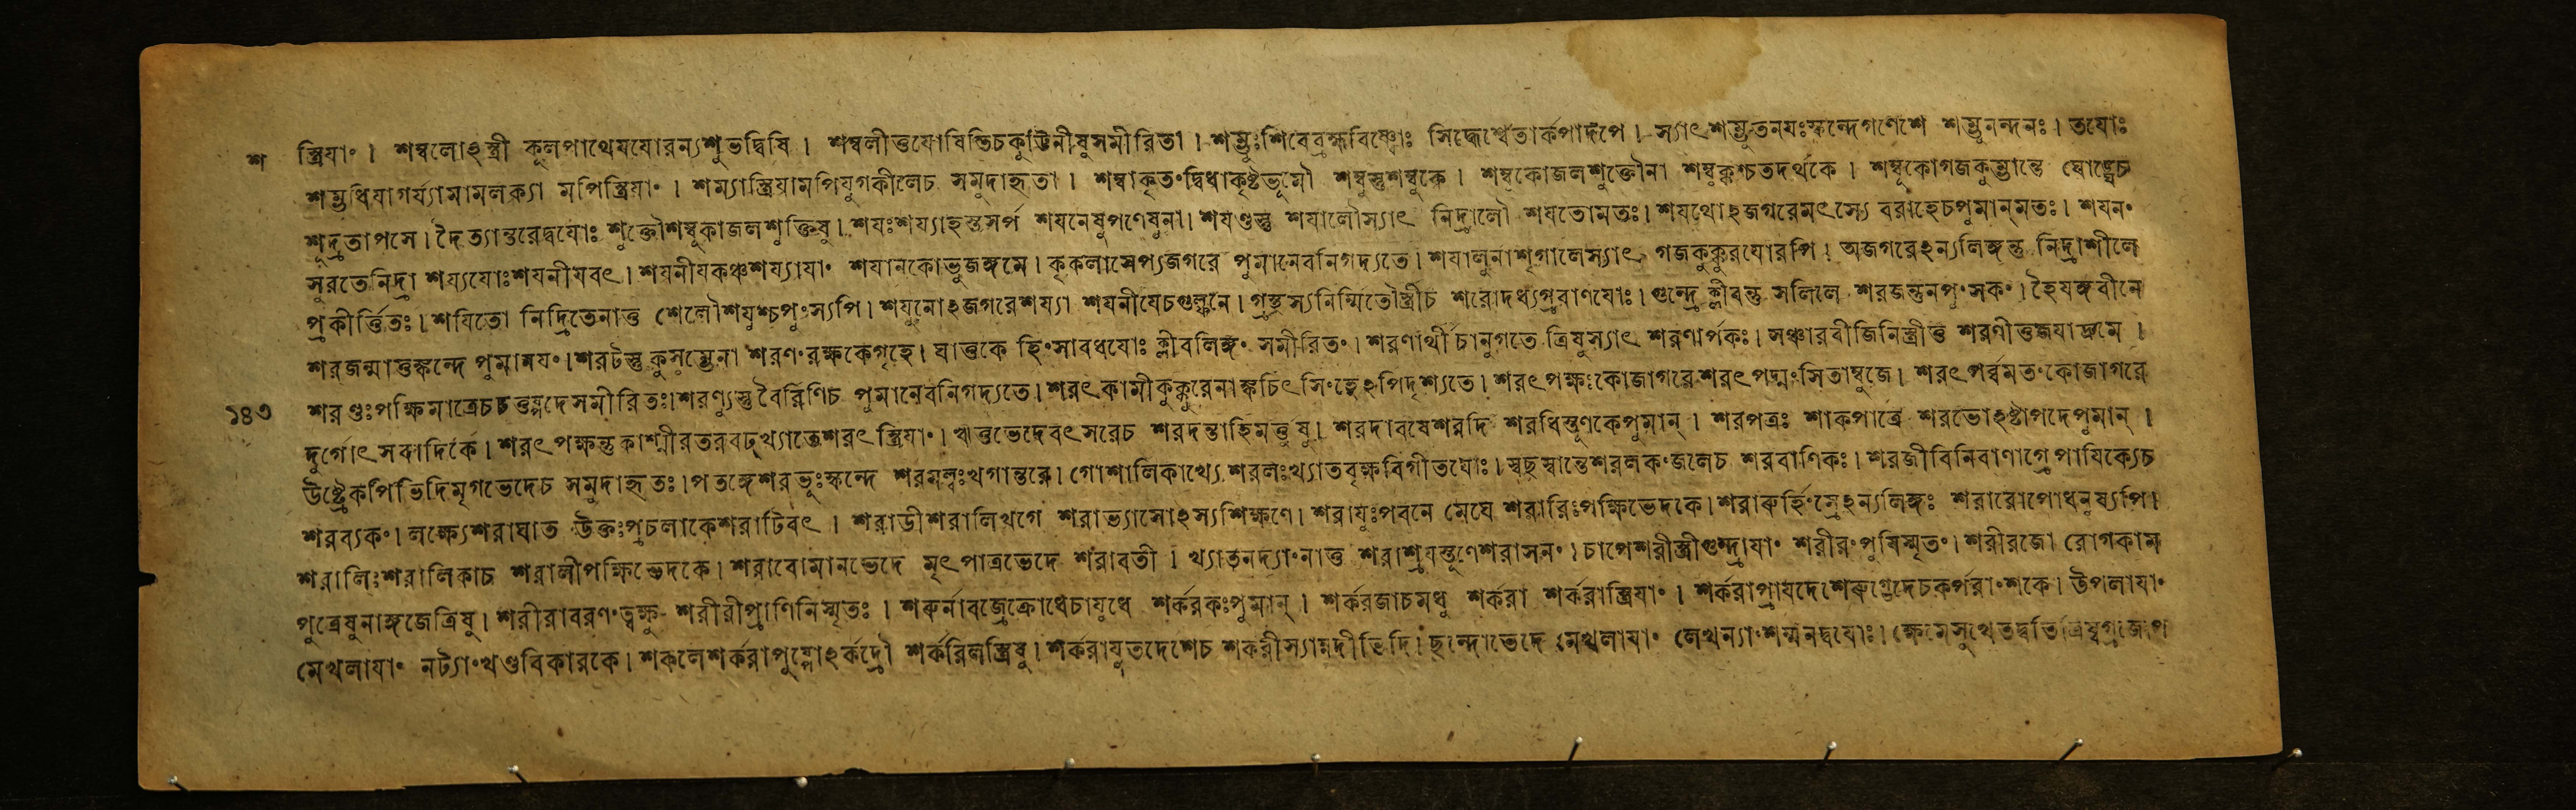 শ স্ত্রিযাং । শম্বলোঽস্ত্রী কূলপাথেযযোরন্যশুভদ্বিষি । শম্বলীত্তযোষিত্তিচকুট্টিনীষুসমীরিতা । শম্ভুঃশিবেব্রহ্মবিষ্ণোঃ সিদ্ধেশ্বেতার্কপাদপে । স্যাৎশম্ভুতনযঃস্কন্দেগণেশে শম্ভুনন্দনঃ । তযোঃ
শম্ভুধিযাগর্য্যামামলক্যা মপিস্ত্রিযাং । শম্যাস্ত্রিযামপিযুগকীলেচ সমুদাহৃতা । শম্বাকৃতংদ্বিধাকৃষ্টভূমৌ শম্বুস্তুশম্বুকে । শম্বকোজলশুক্তৌনা শম্বুকশ্চতদর্থকে । শম্বূকোগজকুম্ভান্তে ঘোঙ্ঘেচ
শূদ্রতাপসে । দৈত্যান্তরেদ্বযোঃ শুক্তৌশম্বুকাজলশুক্তিষু । শযঃশয্যাহস্তসর্প শযনেষুপণেষুনা । শযণ্ডস্তু শযালৌস্যাৎ নিদ্রালৌ শযতোমতঃ । শযথোঽজগরেমৎস্যে বরাহেচপুমান্মতঃ । শযনং
সুরতেনিদ্রা শয্যযোঃশযনীযবৎ । শযনীযকঞ্চশয্যাযাং শযানকোভুজঙ্গমে । কৃকলাসেপ্যজগরে পুমানেবনিগদ্যতে । শযালুনাশৃগালেস্যাৎ গজকুক্কুরযোরপি । অজগরেঽন্যলিঙ্গন্তু নিদ্রাশীলে
প্রকীর্ত্তিতঃ । শযিতো নিদ্রিতেনাত্ত শেলৌশযুশ্চপুংস্যপি । শযুনোঽজগরেশয্যা শযনীযেচগুম্ফনে । গ্রন্থস্যনির্ম্মিতৌস্ত্রীচ শরোদধ্যগ্রবাণযোঃ । গুন্দ্রে ক্লীবন্তু সলিলে শরজন্তুনপুংসকং । হৈযঙ্গবীনে
শরজন্মাত্তুস্কন্দে পুমানযং । শরটস্তু কুসুম্ভেনা শরণংরক্ষকেগৃহে । ঘাত্তকে হিংসাবধযোঃ ক্লীবলিঙ্গং সমীরিতং । শরণার্থী চানুগতে ত্রিষুস্যাৎ শরণার্পকঃ । সঞ্চারবীজিনিস্ত্রীত্ত শরণীত্তজযাহ্বমে ।
১৪৩ শরণ্ডঃপক্ষিমাত্রেচচত্তুষ্পদেসমীরিতঃ । শরণ্যুস্তুবৈরিণিচ পুমানেবনিগদ্যতে । শরৎকামীকুক্কুরেনাক্কচিৎসিংহেঽপিদৃশ্যতে । শরৎপক্ষঃকোজাগরে শরৎপদ্মঃসিতাম্বুজে । শরৎপর্ব্বমতংকোজাগরে
দুর্গোৎসবাদিকে । শরৎপক্ষন্তুকাশ্মীরতরবঢখ্যাতেশরৎস্ত্রিযাং । ঋত্তুভেদেবৎসরেচ শরদন্তাহিমর্ত্তুষু । শরদাবষেশরদি শরধিস্তূণকেপুমান্ । শরপত্রঃ শাকপাত্রে শরভোঽষ্টাপদেপুমান্ ।
উষ্ট্রেকপিভিদিমৃগভেদেচ সমুদাহৃতঃ । পতঙ্গেশরভূঃস্কন্দে শরমল্লঃখগান্তরে । গোশালিকাখ্যে শরলঃখ্যাতবৃক্ষবিগীতযোঃ । স্বচ্ছস্বান্তেশরলকংজলেচ শরবাণিকঃ । শরজীবিনিবাণাগ্রে পাযিক্যেচ
শরব্যকং । লক্ষ্যেশরাঘাত উক্তঃপ্রচলাকেশরাটিবৎ । শরাডীশরালিখগে শরাভ্যাসোঽস্যশিক্ষণে । শরাযুঃপবনে মেঘে শরারিঃপক্ষিভেদকে । শরারুর্হিংস্রেঽন্যলিঙ্গঃ শরারোপোধনুষ্যপি ।
শরালিঃশরালিকাচ শরালীপক্ষিভেদকে । শরাবোমানভেদে মৃৎপাত্রভেদে শরাবতী । খ্যাতনদ্যাংনাত্ত শরাশ্রযস্তূণেশরাসনং । চাপেশরীস্ত্রীগুন্দ্রাযাং শরীরংপুষিস্মৃতং । শরীরজো রোগকাম
পুত্রেষুনাঙ্গজেত্রিষু । শরীরাবরণংত্বক্ষু শরীরীপ্রাণিনিস্মৃতঃ । শরুর্নাবজ্রেক্রোধেচাযুধে শর্করকঃপুমান্ । শর্করজাচমধু শর্করা শর্করাস্ত্রিযাং । শর্করাপ্রাযদেশেরুগ্ভেদেচকর্পরাংশকে । উপলাযাং
মেখলাযাং নট্যাংখণ্ডবিকারকে । শকলেশর্করাপুষ্পোঽর্কদ্রৌ শর্করিলস্ত্রিষু । শর্করাযুতদেশেচ শর্করীস্যান্নদীভিদি । ছন্দোভেদে মেখলাযাং লেখন্যাংশর্ম্মনদ্বযোঃ । ক্ষেমেসুখেতদ্বতি